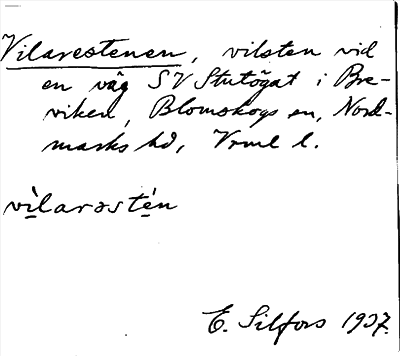 Vilarestenen, vilsten vid
en väg SV Stutögat i Bre-
viken, Blomskogs sn, Nord-
marks hd, Vrml l.
vìlarəstén
E. Silfors 1937.